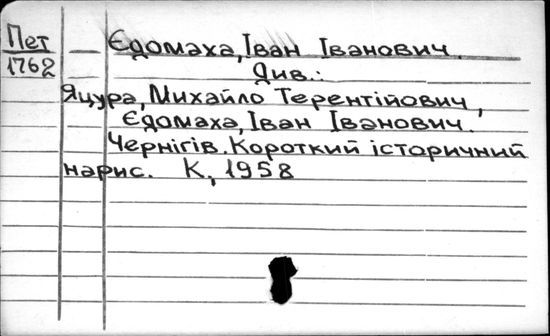 Пет — Єдомаха, Іван Іванович.
1762
Див.:
Яцура, Михайло Терентійович,
Єдомаха, Іван Іванович.
Чернігів. Короткий історичний
нарис. К, 1958